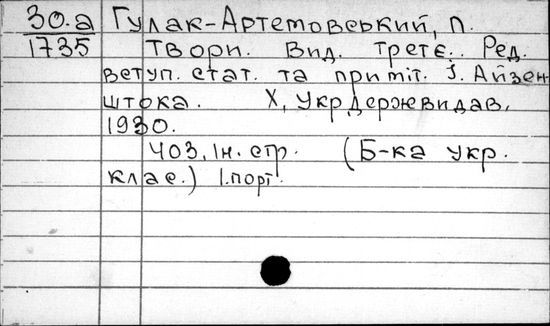 30.а Гулак-Артемовський, П.
1735 Твори. Вид. третє. Ред.
вступ. стат. та приміт. І. Айзен
штока. Х, Укрдержвидав,
1930.
403, Ін. стр. (Б-ка укр.
клас.) І.порт.